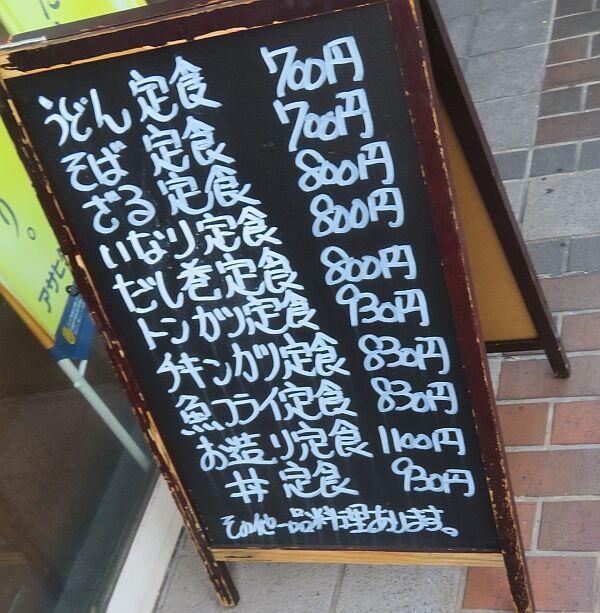 うどん 定食 700円
そば 定食 700円
ざる 定食 800円
いなり定食 800円
だし巻定食 800円
トンカツ定食 930円
チキンカツ定食 830円
魚フライ定食 830円
お造り定食 1100円
丼 定食 930円
その他一品料理あります。
り。
アサヒ